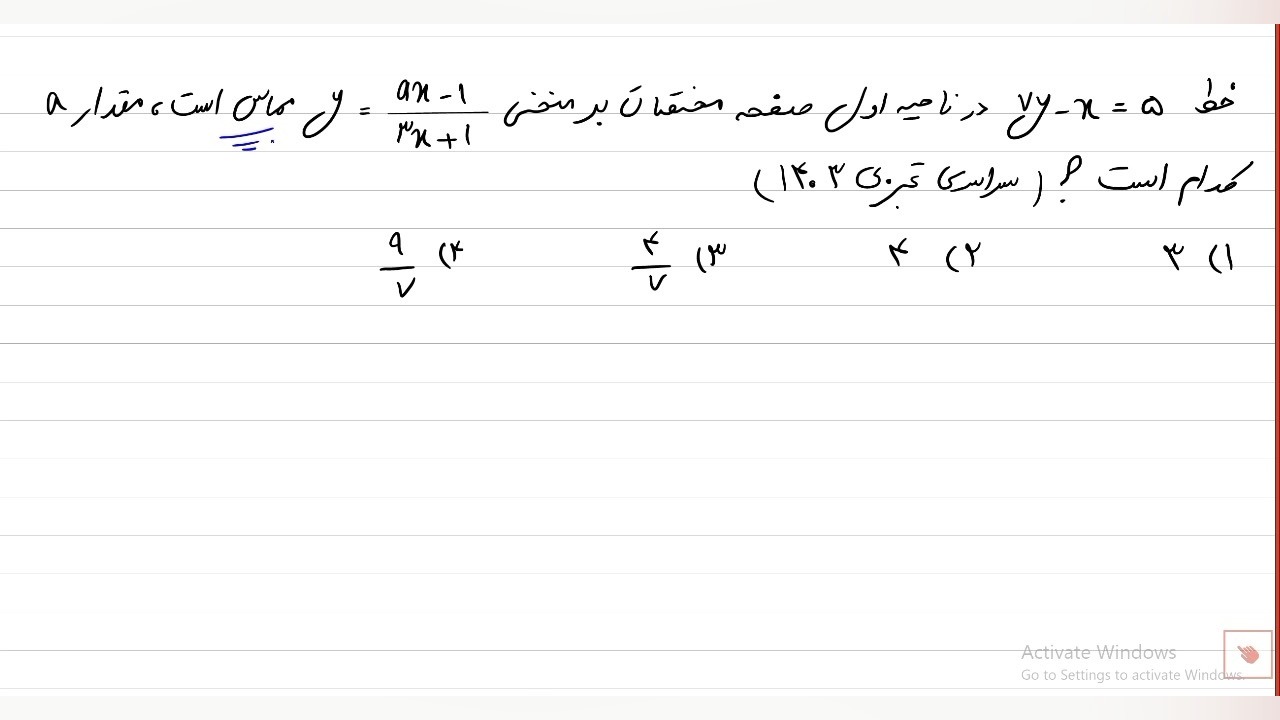 خط ۷y - x = ۵ در ناحیه اول صفحه مختصات بر منحنی y = (ax - ۱)/(۳x + ۱) مماس است، مقدار a
کدام است؟ (سراسری تجربی ۱۴۰۳)
۱) ۳ ۲) ۴ ۳) ۴/۷ ۴) ۹/۷
Activate Windows
Go to Settings to activate Windows.